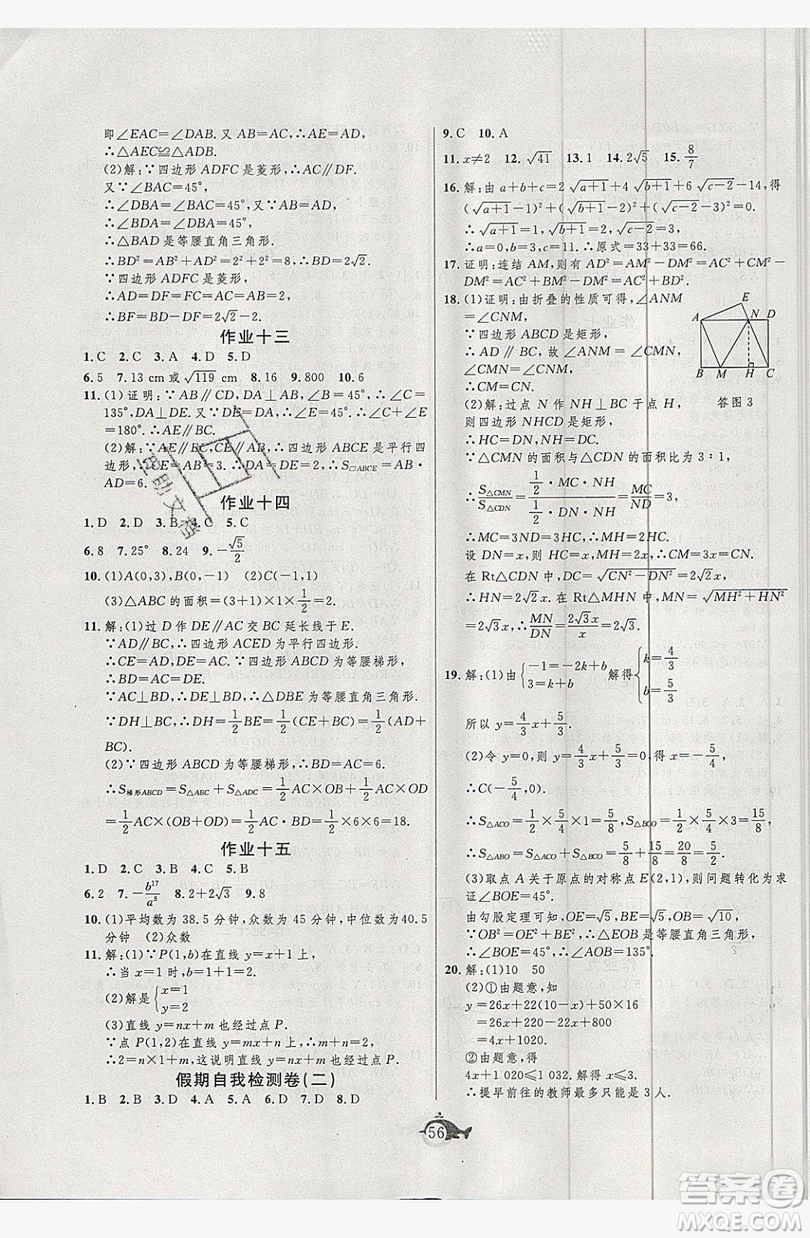 即∠EAC=∠DAB.又∵AC=AB,∴AE=AD,
∴△AEC≌△ADB.
(2)解:∵四边形ADFC是菱形,∴AC∥DF.
又∵∠BAC=45°,
∴∠DBA=∠BAC=45°,
∴∠BDA=∠DBA=45°,
∴△BAD是等腰直角三角形.
∴BD²=AB²+AD²=2²+2²=8.∴BD=2√2.
∵四边形ADFC是菱形,
∴AD=DF=FC=AC=AB=2,
∴BF=BD-DF=2√2-2.
作业十三
1.C 2.C 3.A 4.D 5.D
6.5 7.13 cm或√119 cm 8.16 9.800 10.6
11.(1)证明:∵AB∥CD,DA⊥AB,∠B=45°,∴∠C=
135°,DA⊥DE.又∵DA=DE,∴∠E=45°.∴∠C+∠E
=180°.
(2)解:∵AE∥BC,AB∥CE,∴四边形ABCE是平行四
边形,∴CE=AB=3.∵DA=DE=2,∴S▱ABCE=CE·AD=6.
作业十四
1.D 2.D 3.B 4.C 5.C
6.8 7.25° 8.24 9.-√5/2
10.(1)A(0,3),B(0,-1) (2)C(-1,1)
(3)△ABC的面积=(3+1)×1×1/2=2.
11.解:(1)过D作DE∥AC交BC延长线于E.
∵AD∥BC,∴四边形ACED为平行四边形.
∴CE=AD,DE=AC.∵四边形ABCD为等腰梯形,
∴BD=AC=DE.
∵AC⊥BD,∴DE⊥BD,∴△DBE为等腰直角三角形.
∵DH⊥BC,∴DH=1/2BE=1/2(CE+BC)=1/2(AD+
BC).
(2)∵四边形ABCD为等腰梯形,∴BD=AC=6.
∴S梯形ABCD=S△ABC+S△ADC=1/2AC×OB+1/2AC×OD
=1/2AC×(OB+OD)=1/2AC·BD=1/2×6×6=18.
作业十五
1.D 2.C 3.D 4.B 5.B
6.2 7.-b¹⁷/a⁸ 8.2+2√3 9.8
10.(1)平均数为38.5分钟,众数为45分钟,中位数为40.5
分钟 (2)众数
11.解:(1)∵P(1,b)在直线y=x+1上,
∴当x=1时,b=1+1=2.
(2)解是{x=1 y=2
(3)直线y=nx+m也经过点P.
∵点P(1,2)在直线y=mx+n上,∴m+n=2,
∴2=n×1+m,这说明直线y=nx+m也经过点P.
假期自我检测卷(二)
1.B 2.D 3.A 4.B 5.D 6.B 7.D 8.D
9.C 10.A
11.x≠2 12.√41 13.1 14.2√5 15.8/7
16.解:由a+b+c=2√(a+1)+4√(b+1)+6√(c-2)-14,得
(√(a+1)-1)²+(√(b+1)-2)²+(√(c-2)-3)²=0.
∴√(a+1)=1,√(b+1)=2,√(c-2)=3.
∴a=0,b=3,c=11.∴原式=33+33=66.
17.证明:连结AM,则有AD²=AM²-DM²=AC²+CM²-
DM²=AC²+BM²-DM²=AC²+BD².
18.(1)证明:由折叠的性质可得,∠ANM
=∠CNM,
∵四边形ABCD是矩形,
∴AD∥BC,∴∠ANM=∠CMN,
∴∠CMN=∠CNM,
∴CM=CN.
A N D
B M H C
答图3
(2)解:过点N作NH⊥BC于点H,
则四边形NHCD是矩形,
∴HC=DN,NH=DC.
∵△CMN的面积与△CDN的面积比为3∶1,
∴S△CMN/S△CDN=(1/2·MC·NH)/(1/2·DN·NH)=MC/ND=3,
∴MC=3ND=3HC,∴MH=2HC.
设DN=x,则HC=x,MH=2x,∴CM=3x=CN.
在Rt△CDN中,DC=√(CN²-DN²)=2√2x,
∴HN=2√2x.在Rt△MNH中,MN=√(MH²+HN²)
=2√3x,∴MN/DN=2√3x/x=2√3.
19.解:(1)由{-1=-2k+b 3=k+b 解得{k=4/3 b=5/3
所以y=4/3x+5/3.
(2)令y=0,则0=4/3x+5/3,得x=-5/4,
∴C(-5/4,0).
∴S△ACO=1/2×5/4×1=5/8,S△BCO=1/2×5/4×3=15/8
∴S△AOB=S△ACO+S△BCO=5/8+15/8=20/8=5/2.
(3)取点A关于原点的对称点E(2,1),则问题转化为求
证∠BOE=45°.
由勾股定理可得,OE=√5,BE=√5,OB=√10,
∵OB²=OE²+BE²,∴△EOB是等腰直角三角形.
∴∠BOE=45°,∴∠AOB=135°.
20.解:(1)10 50
(2)①由题意,可得
y=26x+22(10-x)+50×16
=26x+220-22x+800
=4x+1020.
②由题意,得
4x+1 020≤1 032.解得x≤3.
∴提早前往的教师最多只能是3人.
56
答案卷
MXQE.COM